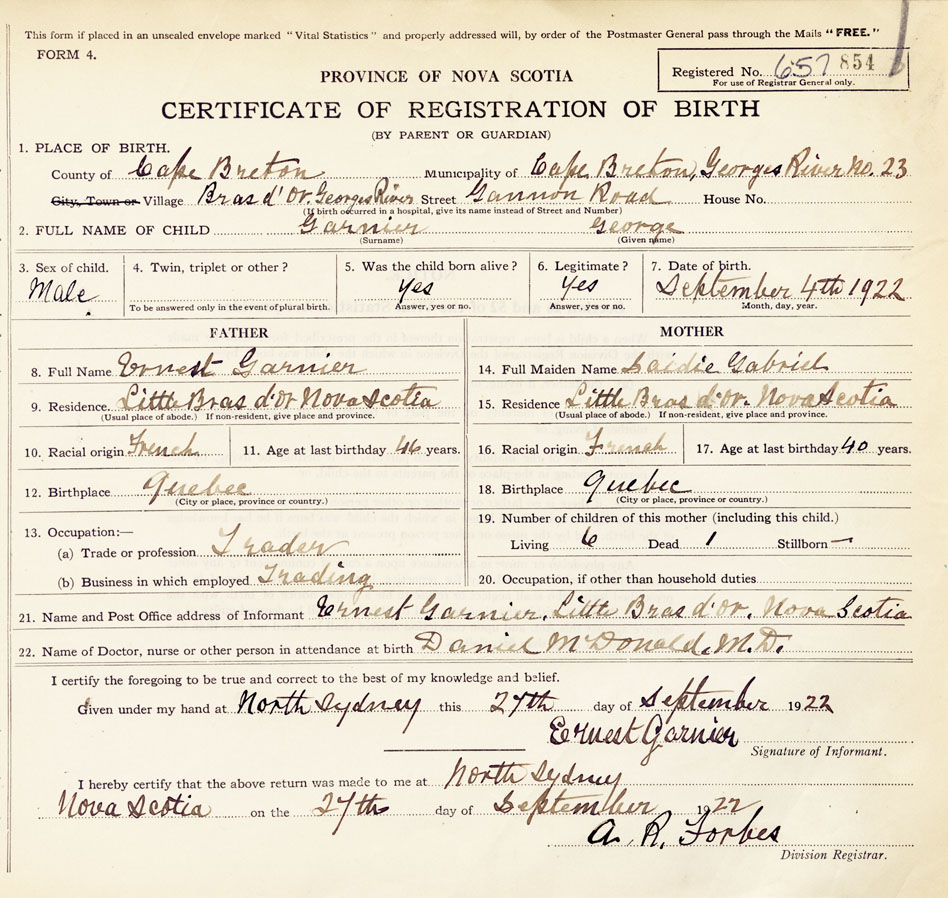 This form if placed in an unsealed envelope marked "Vital Statistics" and properly addressed will, by order of the Postmaster General pass through the Mails "FREE."
FORM 4.
Registered No. 657 854
For use of Registrar General only.
PROVINCE OF NOVA SCOTIA
CERTIFICATE OF REGISTRATION OF BIRTH
(BY PARENT OR GUARDIAN)
1. PLACE OF BIRTH.
County of Cape Breton Municipality of Cape Breton, Georges River No. 23
City, Town or Village Bras d'Or. Georges River Street Gannon Road House No.
(If birth occurred in a hospital, give its name instead of Street and Number)
2. FULL NAME OF CHILD Garnier George
(Surname) (Given name)
3. Sex of child. 4. Twin, triplet or other? 5. Was the child born alive? 6. Legitimate? 7. Date of birth.
Male yes yes September 4th 1922
To be answered only in the event of plural birth. Answer, yes or no. Answer, yes or no. Month, day, year.
FATHER
8. Full Name Ernest Garnier
9. Residence. Little Bras d'Or Nova Scotia
(Usual place of abode.) If non-resident, give place and province.
10. Racial origin French 11. Age at last birthday 46 years.
12. Birthplace Quebec
(City or place, province or country.)
13. Occupation:—
(a) Trade or profession Trader
(b) Business in which employed Trading
MOTHER
14. Full Maiden Name Saidie Gabriel
15. Residence Little Bras d'Or. Nova Scotia
(Usual place of abode.) If non-resident, give place and province.
16. Racial origin French 17. Age at last birthday 40 years.
18. Birthplace Quebec
(City or place, province or country.)
19. Number of children of this mother (including this child.)
Living 6 Dead 1 Stillborn —
20. Occupation, if other than household duties
21. Name and Post Office address of Informant Ernest Garnier, Little Bras d'Or, Nova Scotia
22. Name of Doctor, nurse or other person in attendance at birth Daniel McDonald, M.D.
I certify the foregoing to be true and correct to the best of my knowledge and belief.
Given under my hand at North Sydney this 27th day of September 1922
Ernest Garnier
Signature of Informant.
I hereby certify that the above return was made to me at North Sydney
Nova Scotia on the 27th day of September 1922
A. R. Forbes
Division Registrar.